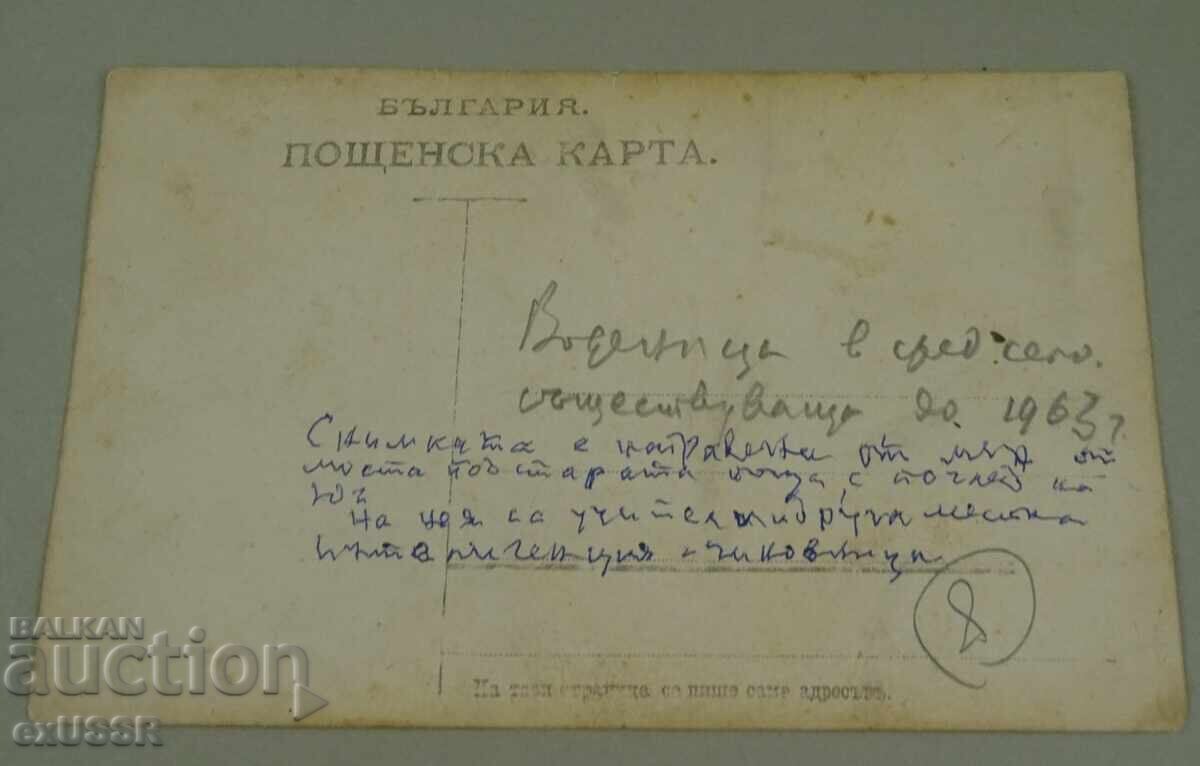 БЪЛГАРИЯ.
ПОЩЕНСКА КАРТА.
Воденица в сред село.
съществуваща до 1963 г.
Снимката е направена от от
моста под старата поща с поглед на
юг
На нея са учители и друга местна
интелигенция - чиновници
8
На тази страница се пише само адресътъ.
BALKAN
auction
exUSSR